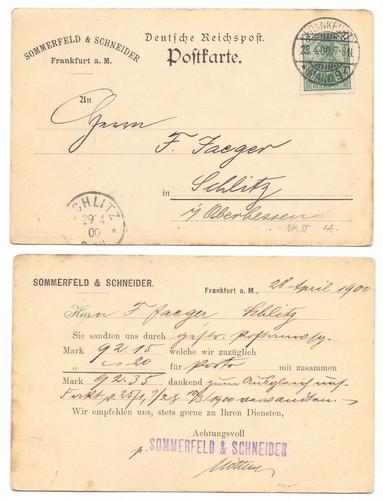 SOMMERFELD & SCHNEIDER
Frankfurt a. M.
Deutsche Reichspost.
Postkarte.
An
Herrn
F. Jaeger
in Schlitz
i/ Oberhessen
SCHLITZ
29 4
00
SOMMERFELD & SCHNEIDER.
Frankfurt a. M., 28 April 1900
Herrn F. Jaeger Schlitz
Sie sandten uns durch gestr. Postanwsg.
Mark 92.15 welche wir zuzüglich
" -.20 für Porto mit zusammen
Mark 92.35 dankend zum Ausgleich uns.
Wir empfehlen uns, stets gerne zu Ihren Diensten,
Achtungsvoll
p. SOMMERFELD & SCHNEIDER